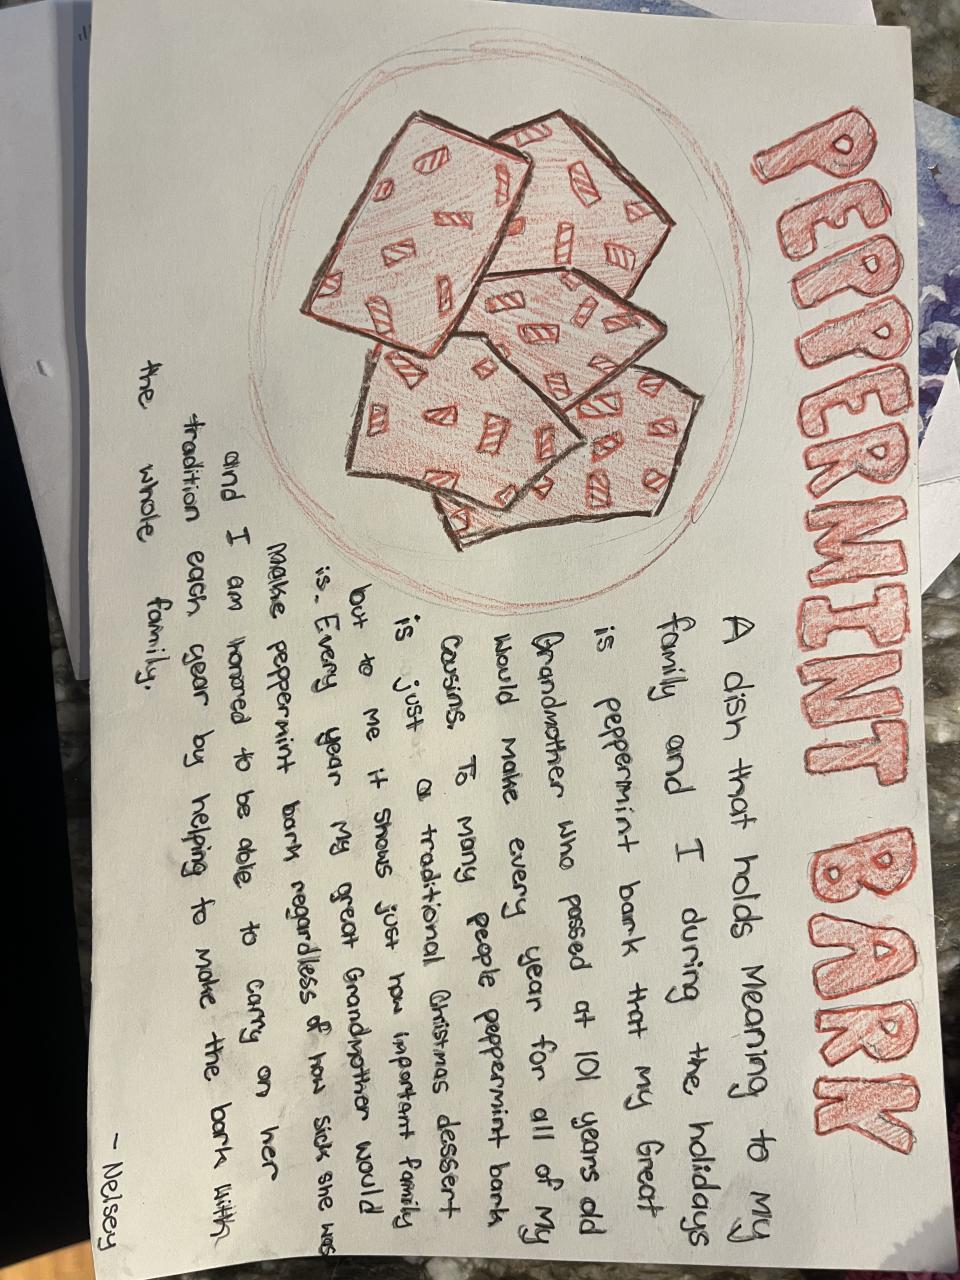 PEPPERMINT BARK
A dish that holds meaning to my
family and I during the holidays
is peppermint bark that my Great
Grandmother who passed at 101 years old
would make every year for all of my
cousins. To many people peppermint bark
is just a traditional Christmas dessert
but to me it shows just how important family
is. Every year my great Grandmother would
make peppermint bark regardless of how sick she was
and I am honored to be able to carry on her
tradition each year by helping to make the bark with
the whole family.
- Nelsey